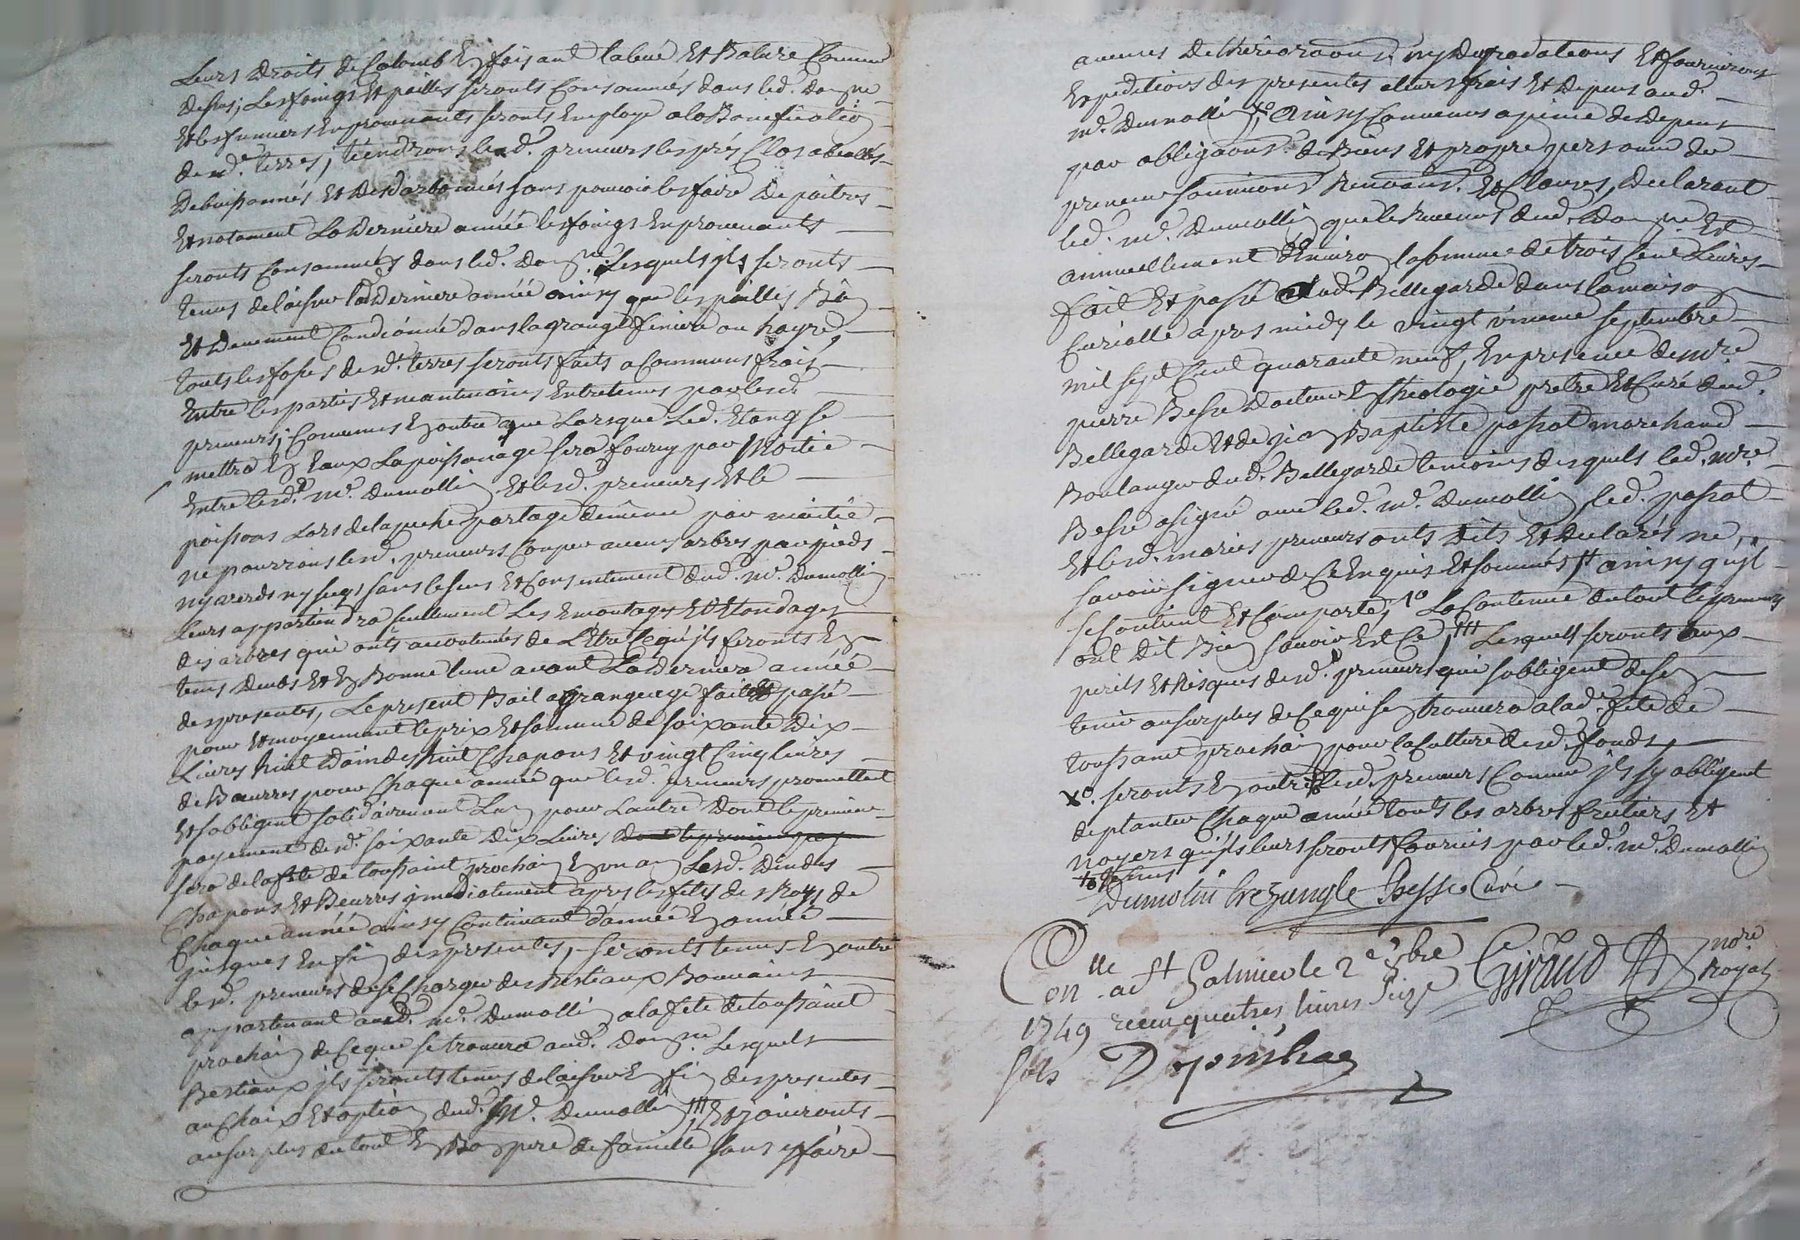 Leurs droits de Colomb En faisant labeué Et Bature Comme
dessus; Les foings Et pailles seronts Consommés dans led. dom.ne
Et les fumiers En provenants seronts Employé a la Bonification
desd. terres, tiendronts lesd. preneurs les prés Clos abeallés
Debuissonnés Et Desdarbonnés sans pouvoir les faire Depaitres
Et notament La derniere année les foings En provenants
seronts Consommés dans led. dom.ne Lesquels jls seronts
tenus delaisser lad. derniere année ainsy que les pailles Bien
Et Deuement Condiónné dans la grange feniere ou hayre,
touts les fossés desd. terres seronts faits a Communs frais
Entre les parties Et maintenües Entretenus par lesd.
preneurs; Convenus En outre que Lorsque Led. Etang se
mettra En Eaux La poissonage sera fourny par Moitié
Entre led. sr. mr. dumollin Et lesd. preneurs Et le
poissons Lors de la peche partagé de meme par moitié
ne pourronts lesd. preneurs Couper aucuns arbres par pieds
ny verds ny secqs sans le sceus Et Consentiment dud. mr. Dumollin
Leurs appartiendra seullement Les Emontages Et Etondages
des arbres qui onts accoutumés de L'Etre Ce qu'jls feronts En
tems deubs Et En Bonne lune avant La derniere année
des presentes, Le present Bail a grangeage fait Et passé
pour Et moyennant le prix Et somme de soixante Dix
Livres huit dindes huit Chapons Et vingt Cinq livres
de Beurres pour Chaque année que lesd. preneurs promettent
Et sobligent solidairement Lun pour Lautre Dont le premier
payement desd. soixante dix Livres Dont le premier pay
sera de la fete de toussaint prochain En un an Lesd. Dindes
Chapons Et Beurres jmediatement apres les fetes des Roys de
Chaque année ainsy Continuant d'année En année
jusques En fin des presentes, seronts tenus En outre
lesd. preneurs de se Charger des Bestiaux Bouvains
appartenant aud. mr. Dumollin a la fete de toussaint
prochain de Ce que se trouvera aud. dom.ne Lesquels
Bestiaux jls seronts tenus delaisser En fin des presentes
au Choix Et option dud. Mr. Dumollin, ||| Et jouironts
au surplus du tout En Bon pere de famille sans y faire
aucunes Detherioraons. ny Degradations Et fourniront
Expeditions des presentes a leurs frais Et Depens aud.
mr. Dumollin, xo ainsy Convenus a peine de Depens
par obligaons. de Biens Et propre personne des
preneurs soumions. Renonaons. Et Clauses, Declarant
led. mr. Dumollin que le Revenus dud. Dom.ne Est
annuellement d'Environ la somme de trois Cent Livres
fait Et passé aud. Bellegarde dans la maison
Curialle apres midy le vingt uneme septembre
mil sept Cent quarante neuf, En presence de mre
pierre Besse Docteur En theologie pretre Et Curé dud.
Bellegarde Et de jean Baptiste passot marchand
Boulanger dud. Bellegarde temoins desquels led. mre.
Besse a signé avec led. mr. Dumollin led. passot
Et lesd. mariés preneurs onts Dits Et Declarés ne
savoir signer de Ce Enquis Et sommés, || ainsy qu'jl
se Contient Et Comporte, 1o La Contenue du tout les preneurs
ont dit Bien savoir Est Ce, ||| Lesquels seronts aux
perils Et Risques desd. preneurs qui sobligent de sen
tenir au surplus de Ce qui sen trouvera a lad. fete de
toussaint prochain pour la Culture desd. fonds,
xo. seronts En outre lesd. preneurs Comme jls sy obligent
de planter Chaque année touts les arbres fruitiers Et
noyers qu'jls leurs seronts fournis par led. Mr. Dumollin
1o tenus
Dumolin trezangle Besse Curé
Conlle a St Galmier le 2e 8bre Giraud Nore Royal
1749 receu quatres livres seize
sols Depinhac